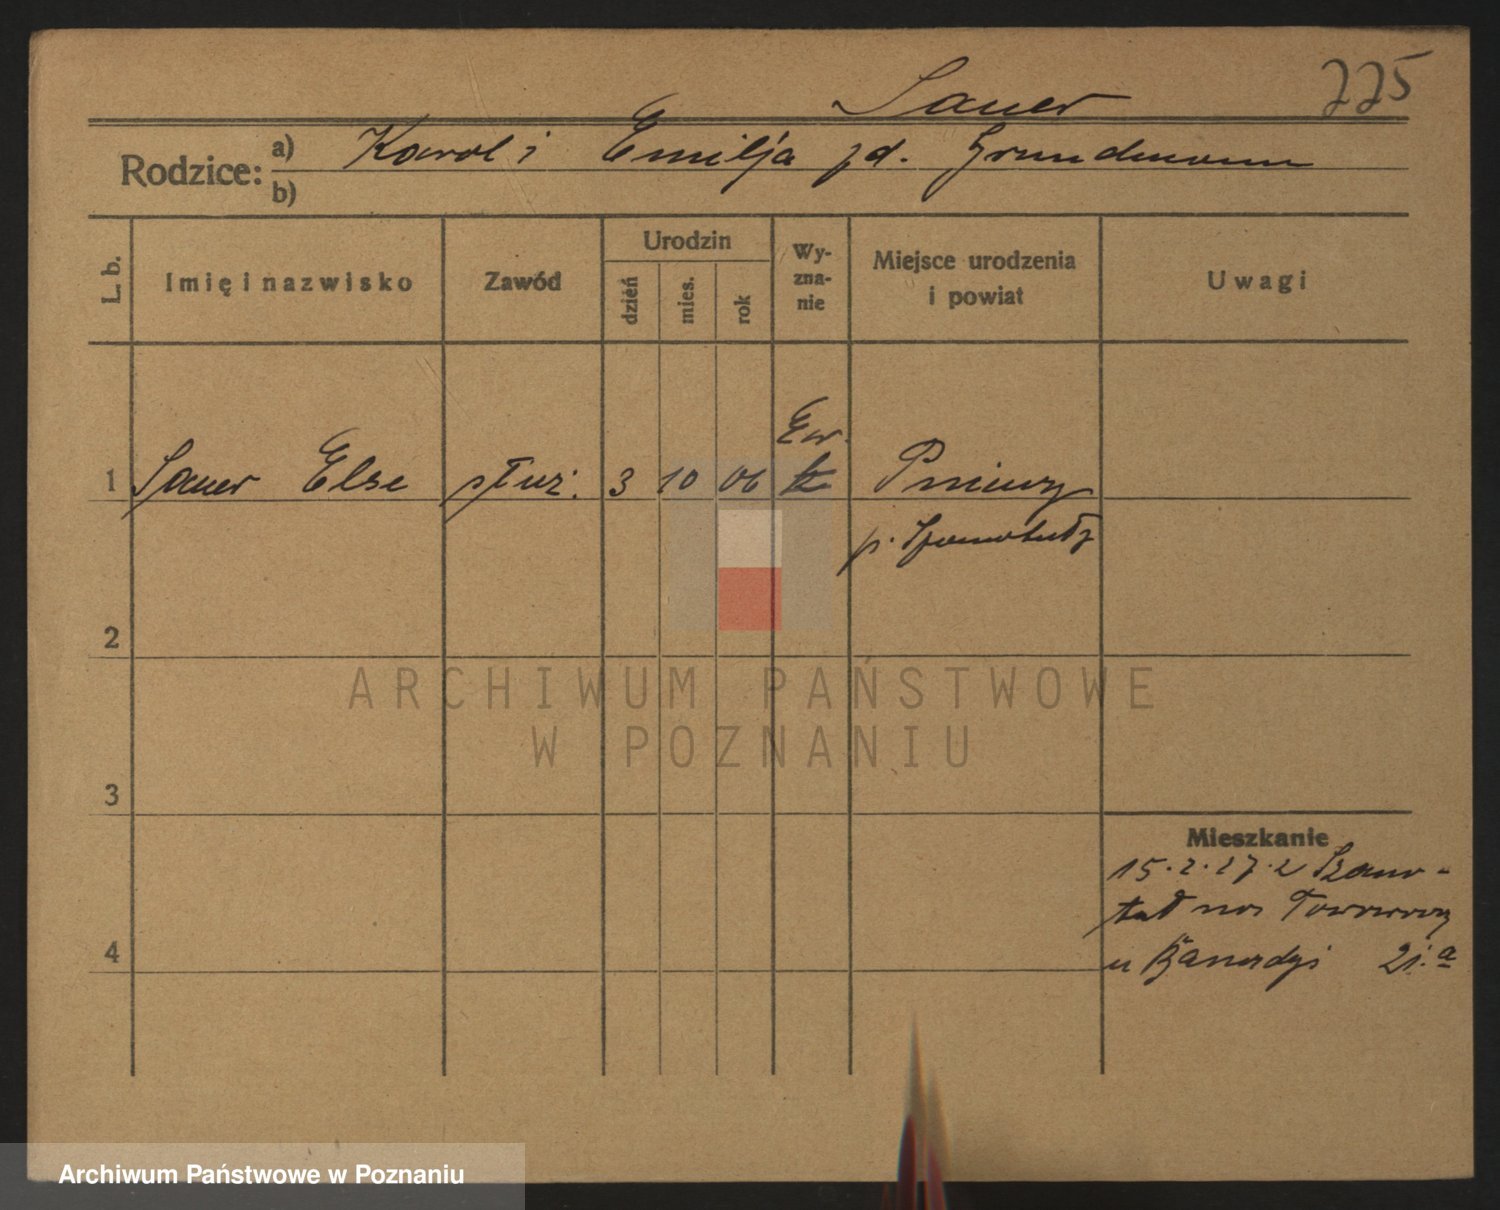 225
Sauer
Rodzice: a) Karol i Emilja zd. Grundmann
b)
L. b. Imię i nazwisko Zawód Urodzin dzień mies. rok Wyznanie Miejsce urodzenia i powiat Uwagi
Ew.
1 Sauer Else służ. 3 10 06 Pniewy
p. Szamotuły
2
ARCHIWUM PAŃSTWOWE
W POZNANIU
3
Mieszkanie
15.2.27 z Szamo-
tuł na
4
u 21.a
Archiwum Państwowe w Poznaniu